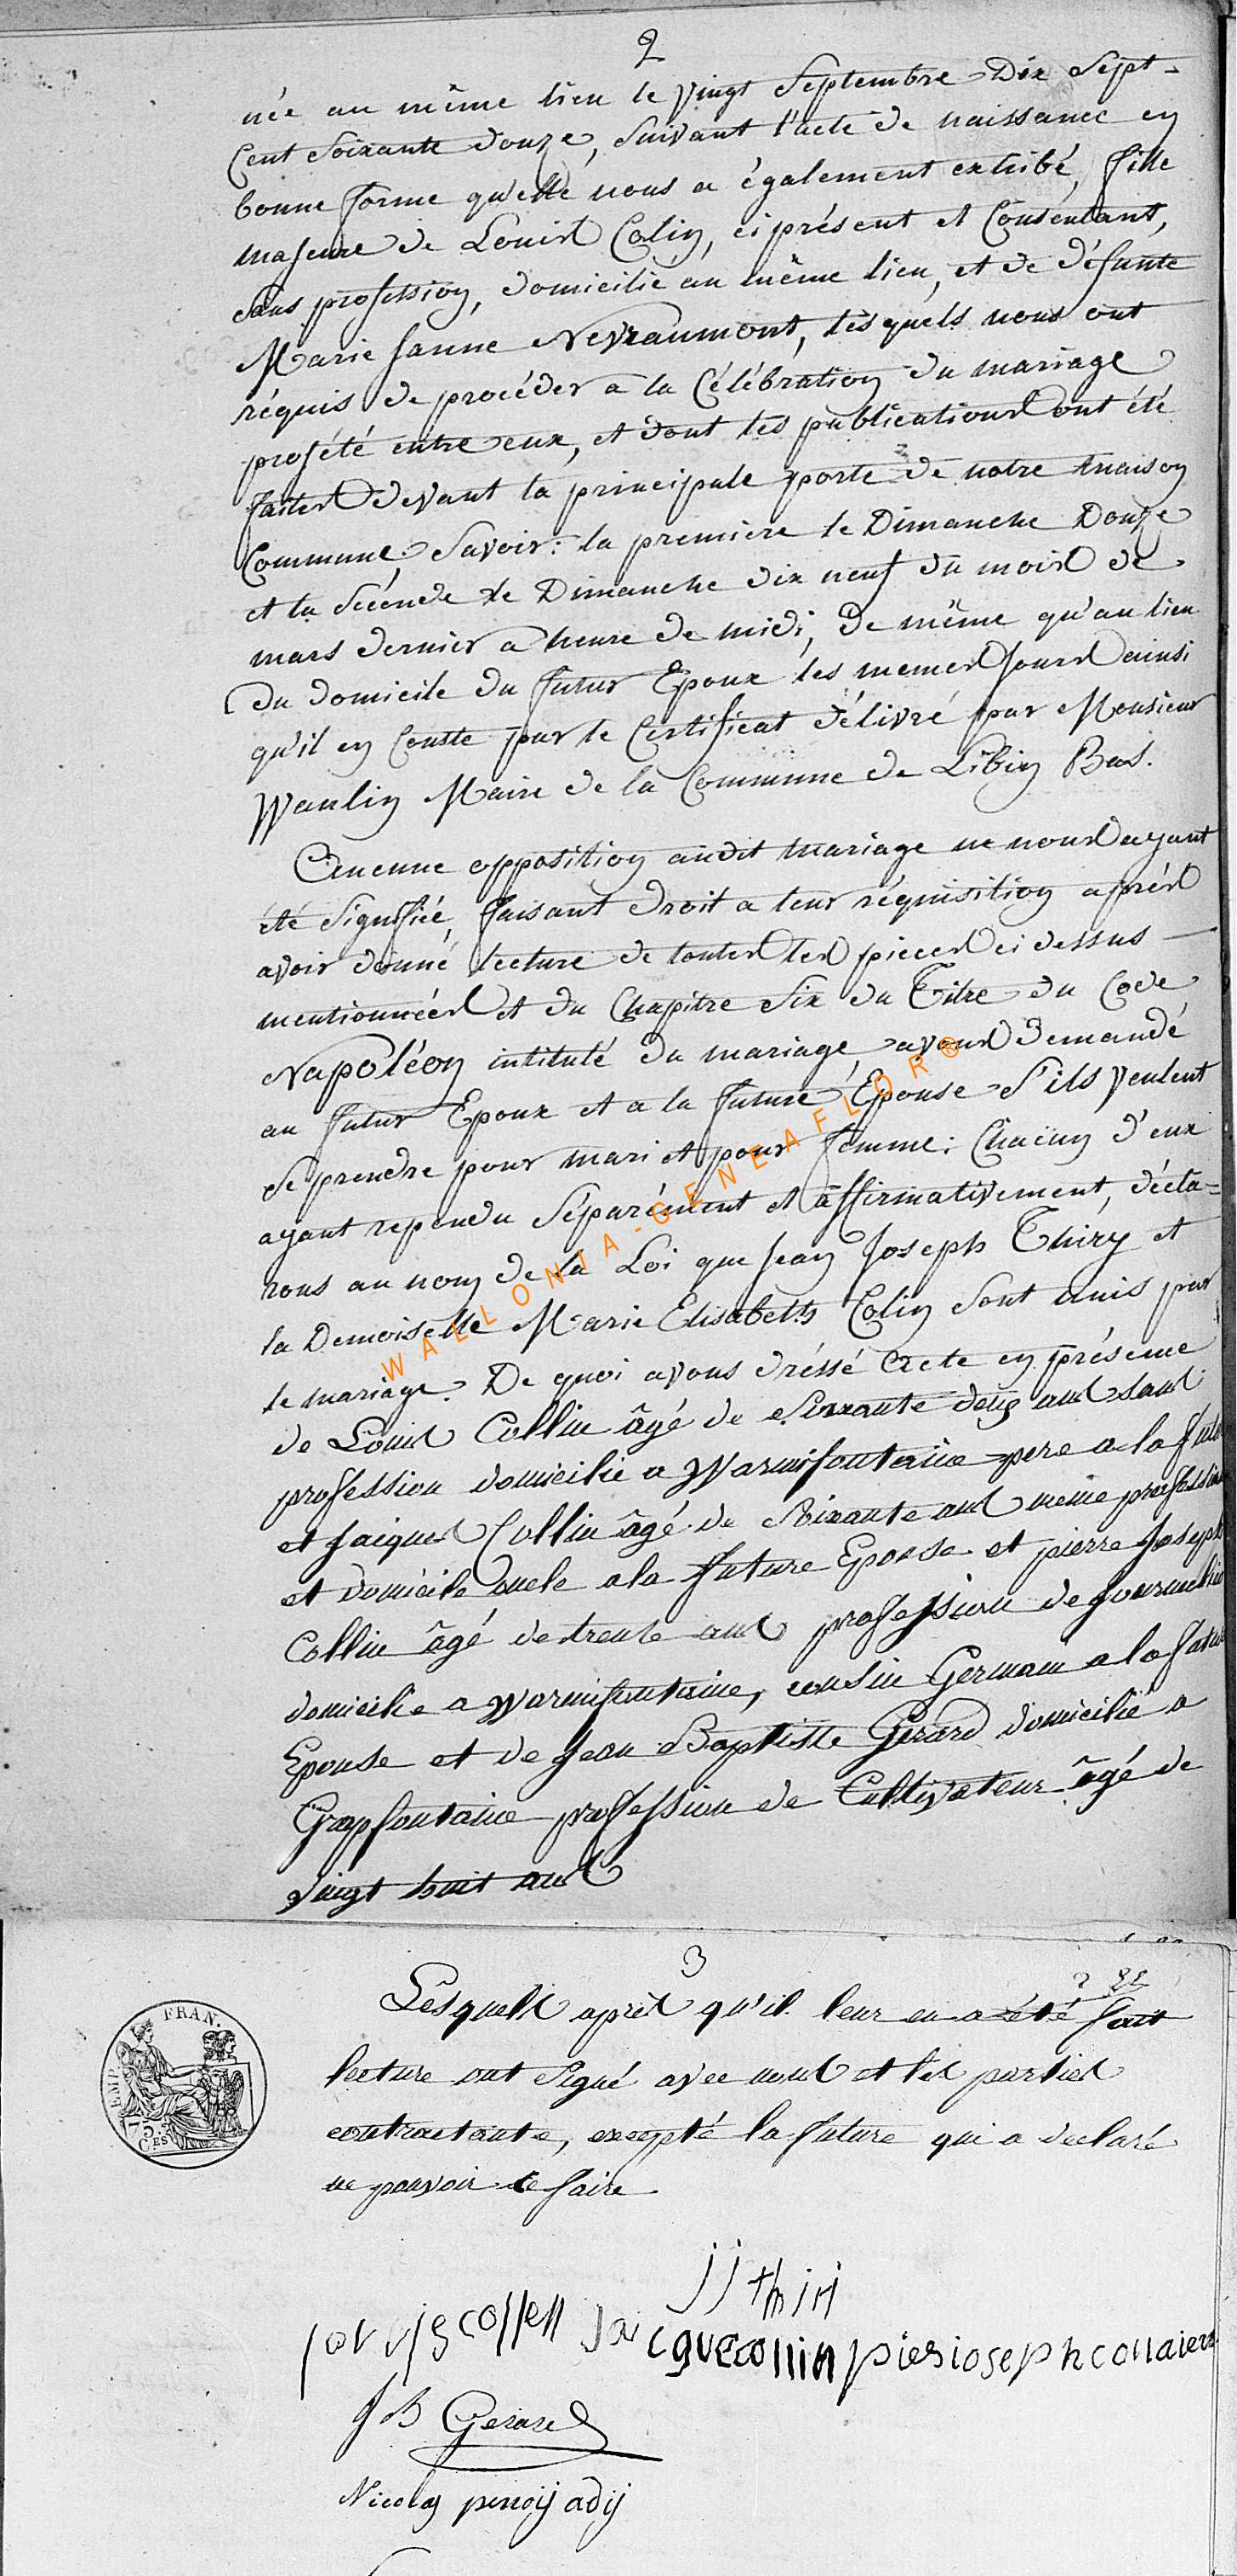 2
née au même lieu le vingt Septembre Dix Sept-
Cent Soixante douze, Suivant l'acte de naissance en
bonne forme qu'elle nous a également exhibé, fille
majeure de Louis Colin, ci présent et Consentant,
Sans profession, domicilié au même lieu, et de défunte
Marie Janne Nevraumont, lesquels nous ont
réquis de procéder a la Célébration du mariage
projété entre eux, et dont les publications ont été
faites devant la principale porte de notre maison
Commune, Savoir: la première le Dimanche Douze
et la Séconde le Dimanche dix neuf du mois de
mars dernier a heure de midi, de même qu'au lieu
du domicile du futur Epoux les memes jours ainsi
qu'il en Conste par le Certificat délivré par Monsieur
Waulin Maire de la Commune de Libin Bas.
Aucune opposition audit mariage ne nous ayant
été Signifiée, faisant droit a leur réquisition après
avoir donné lecture de toutes les pieces ci dessus —
mentionnées et du Chapitre Six du Titre du Code
Napoléon intitulé du mariage, avons demandé
au futur Epoux et a la future Epouse S'ils veulent
Se prendre pour mari et pour femme: Chacun d'eux
ayant repondu Séparément et affirmativement, décla=
rons au nom de la Loi que Jean Joseph Thiry et
la Demoiselle Marie Elisabeth Colin Sont unis par
le mariage. De quoi avons dréssé Acte en présence
de Louis Collin âgé de Soixante deux ans sans
profession domicilié a Warmifontaine pere a la futu
et Jaiques Collin âgé de Soixante ans meme profession
et domicile oncle a la future Epouse et pierre Joseph
Collin âgé de trente ans profession de Journalier
domicilié a Warmifontaine, cousin Germain a la future
Epouse et de Jean Baptiste Gerard domicilié a
Grapfontaine profession de Cultivateur âgé de
vingt huit ans
WALLONIA-GENEAFLOR®
3
Lesquels après qu'il leur en a été fait
lecture ont Signé avec nous et les parties
contractante, excepté la future qui a declaré
ne pouvoir le faire.
EMP. FRAN.
75
CES
jj thiri
jacque collin pieriosephcollaiern
J B Gerard
Nicolas pinoij adij